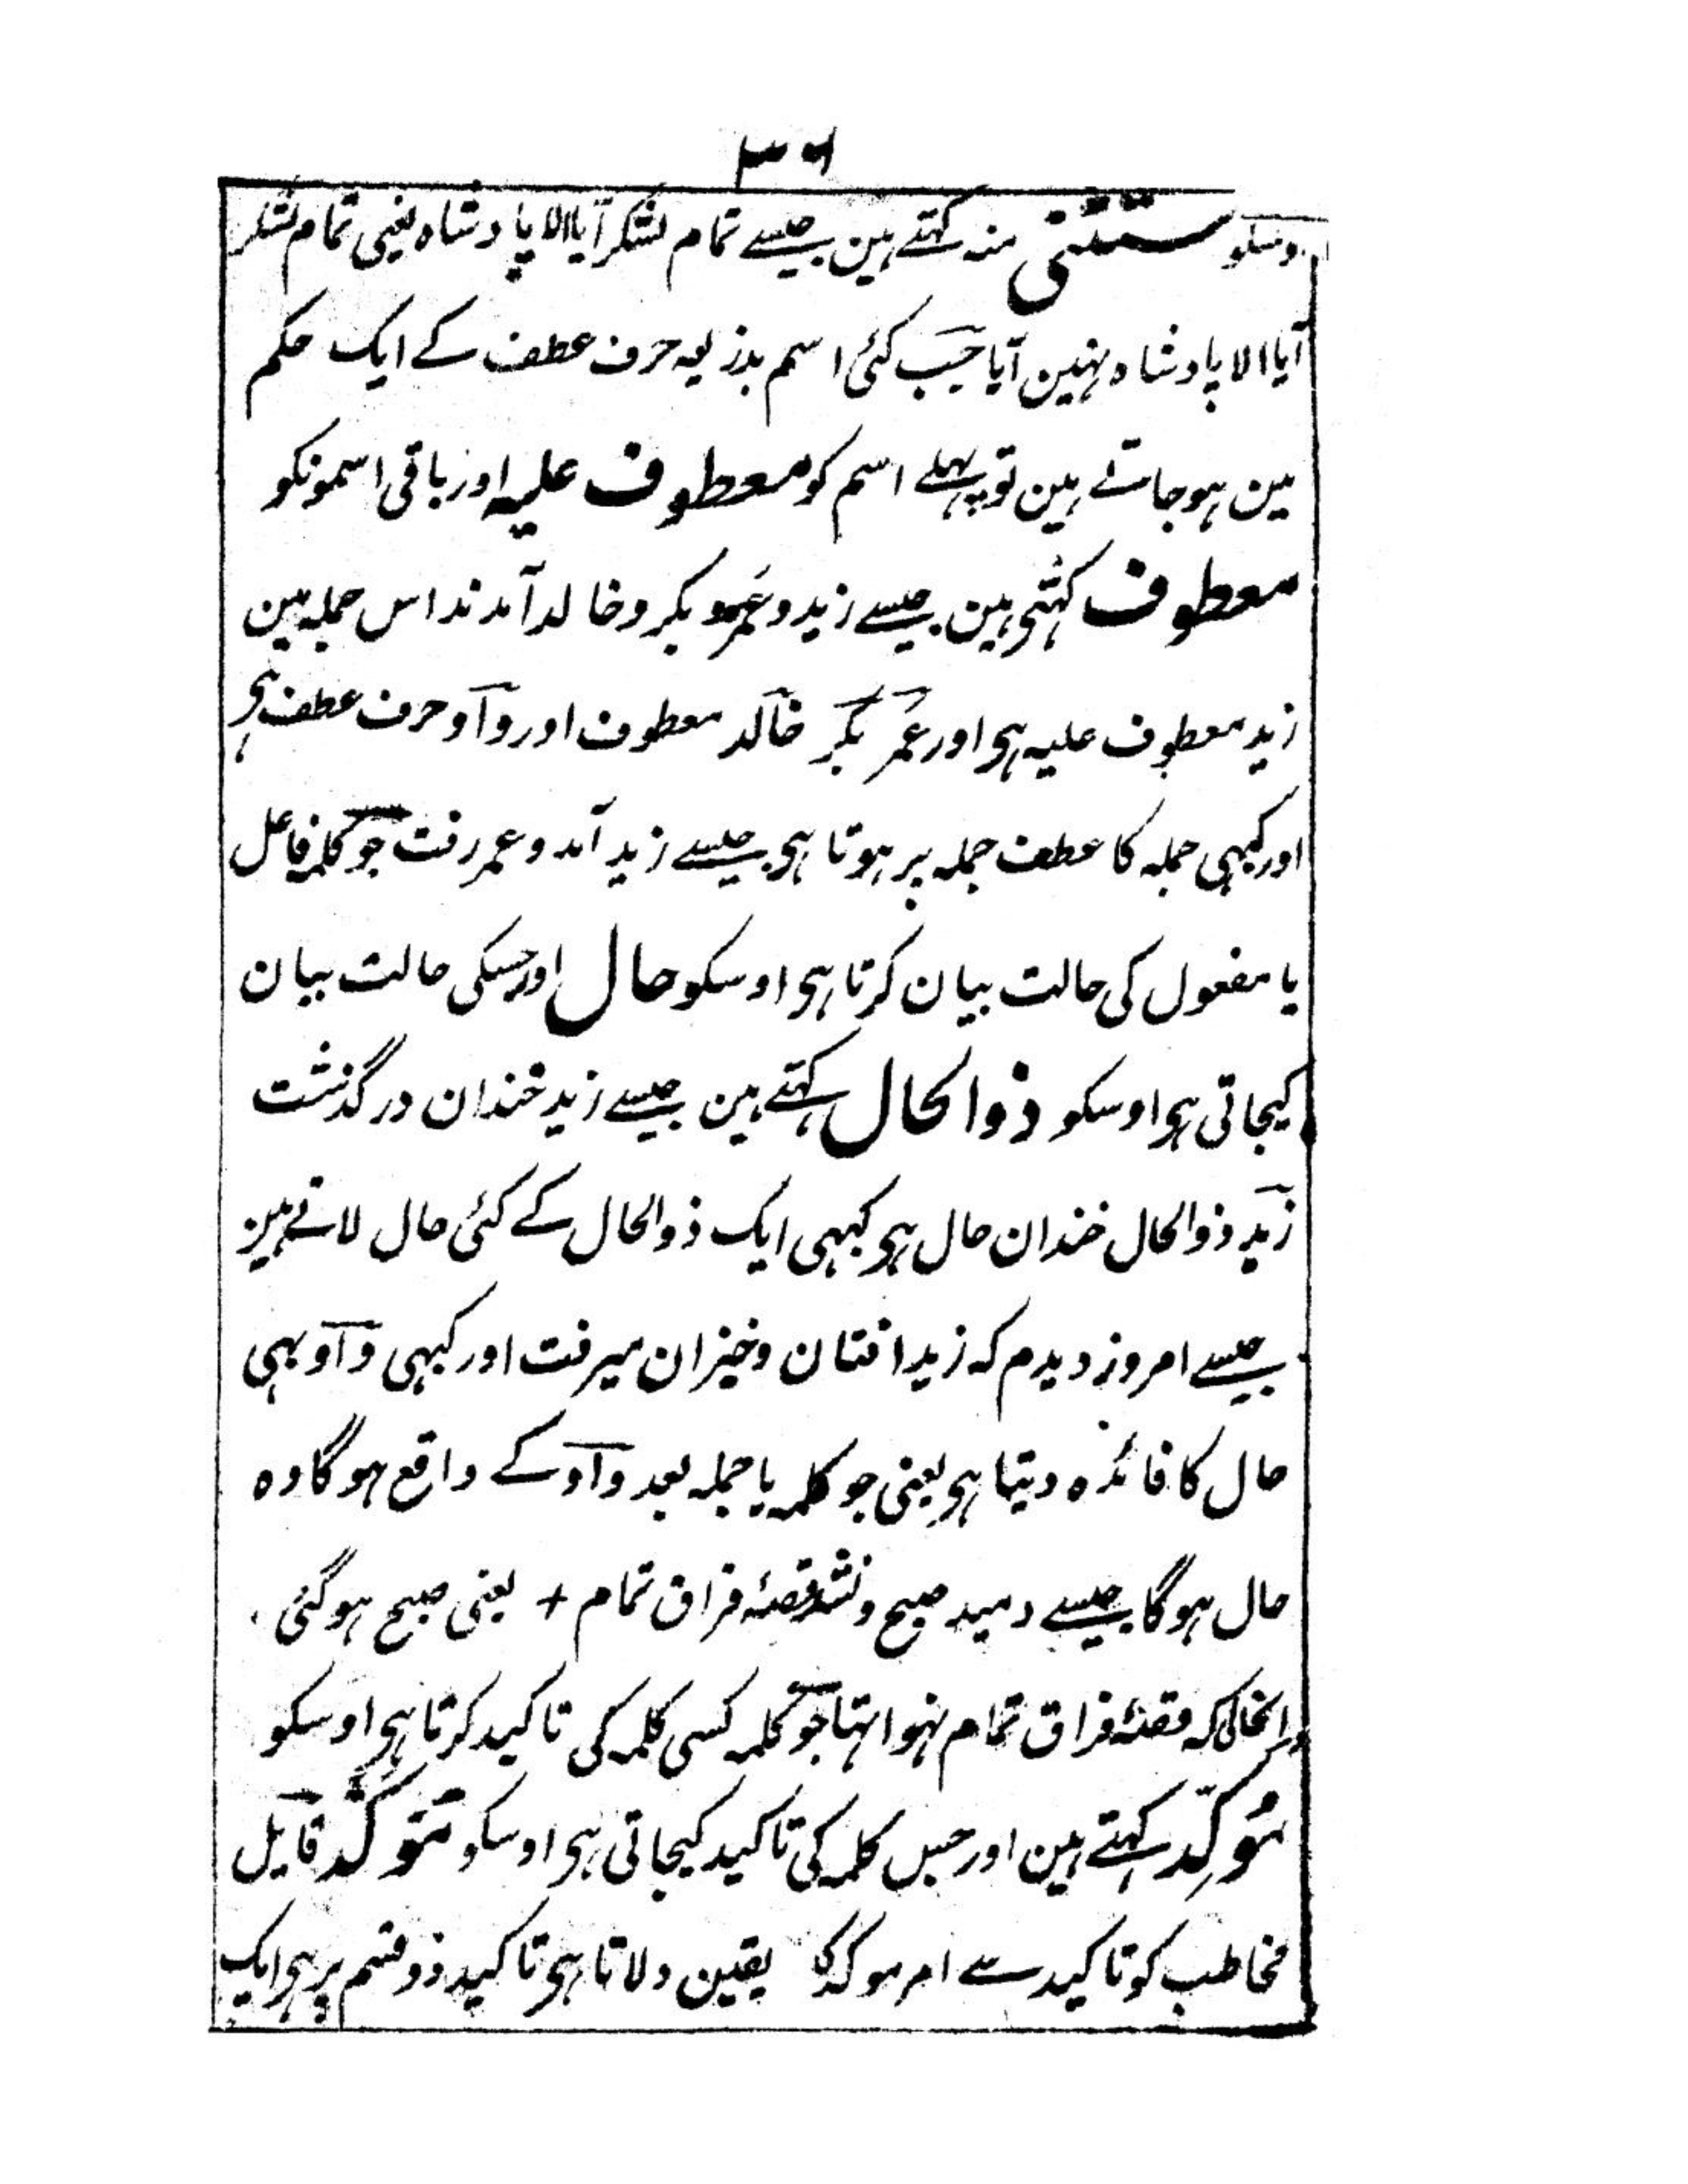 ۳۶
اوسکو مستثنیٰ منہ کہتے ہین جیسے تمام لشکر آیا الا پادشاہ یعنی تمام لشکر
آیا الا پادشاہ نہین آیا جب کئی اسم بذریعہ حرف عطف کے ایک حکم
مین ہوجاتے ہین تو پہلے اسم کو معطوف علیہ اور باقی اسمونکو
معطوف کہتی ہین جیسے زید و عمرو بکر و خالد آمدند اس جملہ مین
زید معطوف علیہ ہی اور عمر بکر خالد معطوف اور واو حرف عطف ہی
اور کبہی جملہ کا عطف جملہ پر ہوتا ہی جیسے زید آمد و عمر رفت جو کلمہ فاعل
یا مفعول کی حالت بیان کرتا ہی اوسکو حال اور جسکی حالت بیان
کیجاتی ہی اوسکو ذوالحال کہتے ہین جیسے زید خندان در گذشت
زید ذوالحال خندان حال ہی کبہی ایک ذوالحال کے کئی حال لاتے ہین
جیسے امروز دیدم کہ زید افتان و خیزان میرفت اور کبہی واو بہی
حال کا فائدہ دیتا ہی یعنی جو کلمہ یا جملہ بعد واو کے واقع ہوگا وہ
حال ہوگا جیسے دمید صبح و نشد قصۂ فراق تمام + یعنی صبح ہوگئی
درانحالیکہ قصۂ فراق تمام نہوا تہا جو کلمہ کسی کلمہ کی تاکید کرتا ہی اوسکو
مُوکِّد کہتے ہین اور جس کلمہ کی تاکید کیجاتی ہی اوسکو مُوَکَّد قایل
مخاطب کو تاکید سے امر موکد کا یقین دلاتا ہی تاکید دو قسم پر ہی ایک